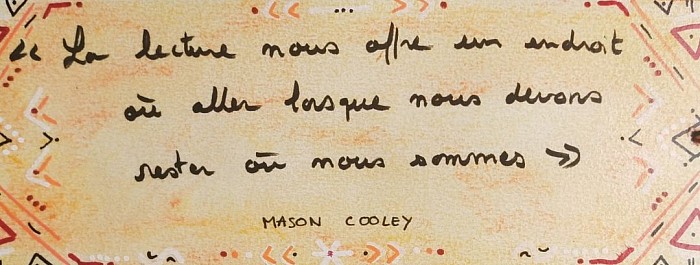 « La lecture nous offre un endroit
où aller lorsque nous devons
rester où nous sommes »
MASON COOLEY